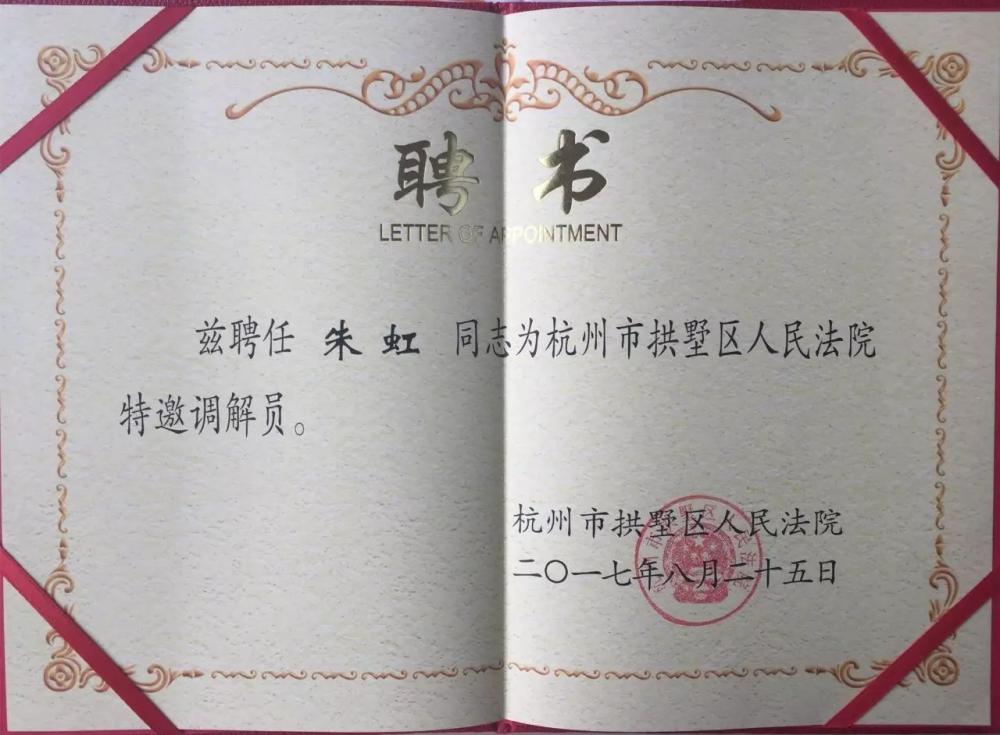 聘书
LETTER OF APPOINTMENT
兹聘任 朱虹 同志为杭州市拱墅区人民法院
特邀调解员。
杭州市拱墅区人民法院
二〇一七年八月二十五日